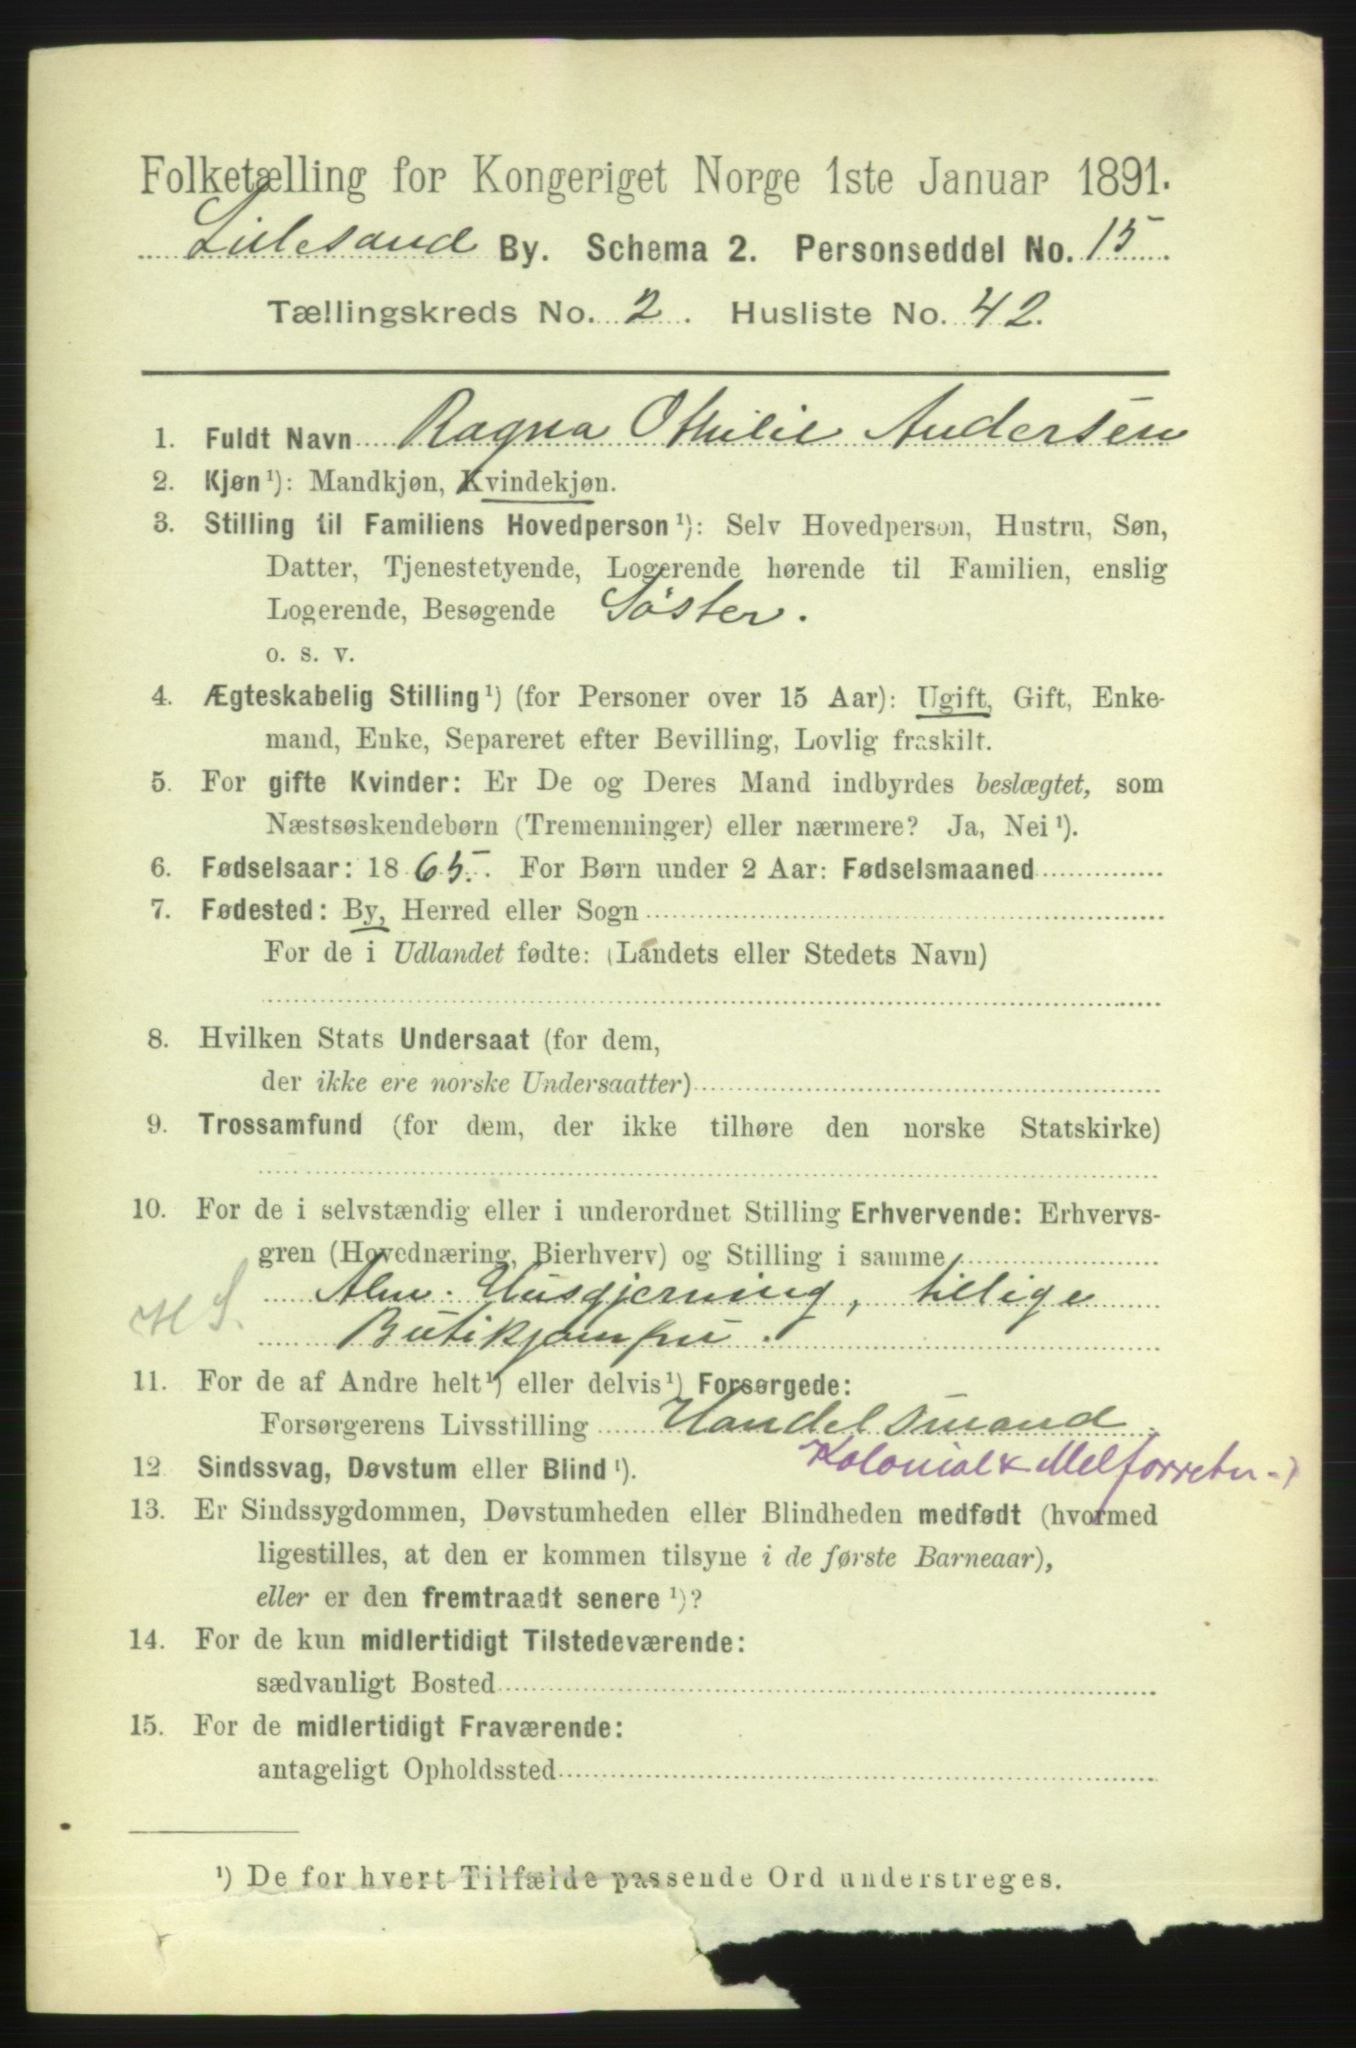 Folketælling for Kongeriget Norge 1ste Januar 1891.
Lillesand By. Schema 2. Personseddel No. 15
Tællingskreds No. 2. Husliste No. 42.
1. Fuldt Navn Ragna Othilie Andersen
2. Kjøn¹): Mandkjøn, Kvindekjøn.
3. Stilling til Familiens Hovedperson¹): Selv Hovedperson, Hustru, Søn,
Datter, Tjenestetyende, Logerende hørende til Familien, enslig
Logerende, Besøgende Søster.
o. s. v.
4. Ægteskabelig Stilling¹) (for Personer over 15 Aar): Ugift, Gift, Enke-
mand, Enke, Separeret efter Bevilling, Lovlig fraskilt.
5. For gifte Kvinder: Er De og Deres Mand indbyrdes beslægtet, som
Næstsøskendebørn (Tremenninger) eller nærmere? Ja, Nei¹).
6. Fødselsaar: 1865. For Børn under 2 Aar: Fødselsmaaned
7. Fødested: By, Herred eller Sogn
For de i Udlandet fødte: (Landets eller Stedets Navn)
8. Hvilken Stats Undersaat (for dem,
der ikke ere norske Undersaatter)
9. Trossamfund (for dem, der ikke tilhøre den norske Statskirke)
10. For de i selvstændig eller i underordnet Stilling Erhvervende: Erhvervs-
gren (Hovednæring, Bierhverv) og Stilling i samme
Alm. Husgjerning, tillige
H S. Butikjomfru.
11. For de af Andre helt¹) eller delvis¹) Forsørgede:
Forsørgerens Livsstilling Handelsmand
Kolonial & Melforretn.)
12 Sindssvag, Døvstum eller Blind¹).
13. Er Sindssygdommen, Døvstumheden eller Blindheden medfødt (hvormed
ligestilles, at den er kommen tilsyne i de første Barneaar),
eller er den fremtraadt senere¹)?
14. For de kun midlertidigt Tilstedeværende:
sædvanligt Bosted
15. For de midlertidigt Fraværende:
antageligt Opholdssted
¹) De for hvert Tilfælde passende Ord understreges.